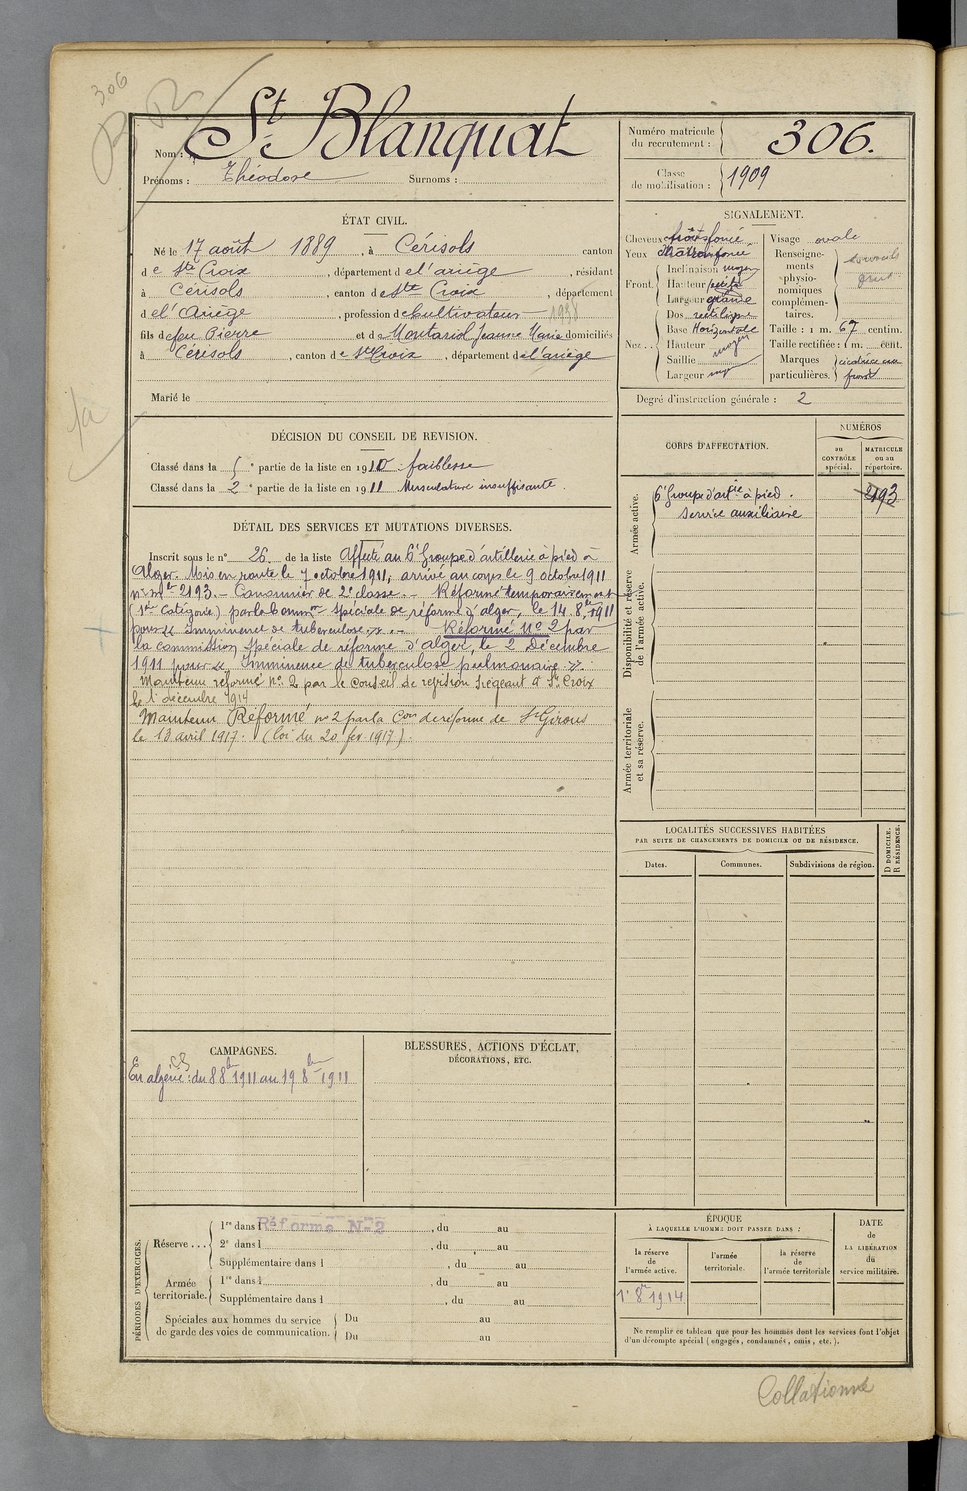 306
Nom : St Blanquat
Prénoms : Théodore Surnoms :
Numéro matricule du recrutement : 306.
Classe de mobilisation : 1909
ÉTAT CIVIL.
Né le 17 août 1889, à Cérisols canton
de Ste Croix, département de l'ariège, résidant
à Cérisols, canton de Ste Croix, département
de l'Ariège, profession de Cultivateur 1938
fils de feu Pierre et de Montariol Jeanne Marie domiciliés
à Cérisols, canton de Ste Croix, département de l'ariège
Marié le
SIGNALEMENT.
Cheveux
Yeux
Front.
Inclinaison moyen
Hauteur petite
Largeur grande
Nez...
Dos rectiligne
Base Horizontale
Hauteur moyen
Saillie
Largeur moy
Visage ovale
Renseignements physionomiques complémentaires.
Taille : 1 m. 67 centim.
Taille rectifiée : 1 m. cent.
Marques particulières. cicatrice au front
Degré d'instruction générale : 2
DÉCISION DU CONSEIL DE REVISION.
Classé dans la 5e partie de la liste en 1910 : faiblesse
Classé dans la 2e partie de la liste en 1911 Musculature insuffisante.
DÉTAIL DES SERVICES ET MUTATIONS DIVERSES.
Inscrit sous le n° 26 de la liste Affecté au 6e Groupe d'artillerie à pied à
Alger. Mis en route le 7 octobre 1911, arrivé au corps le 9 octobre 1911
n° mle 2193. - Canonnier de 2e classe. - Réformé temporairement
(1re Catégorie) par la Common spéciale de réforme d'alger, le 14.8bre 1911
pour « Imminence de tuberculose ». - Réformé N° 2 par
la commission Spéciale de réforme d'alger, le 2 Décembre
1911 pour « Imminence de tuberculose pulmonaire ».
Maintenu réformé n° 2 par le Conseil de révision siégeant à Ste Croix
le 1er décembre 1914
Maintenu Réformé n° 2 par la Con de réforme de St Girons
le 13 avril 1917. (loi du 20 fév. 1917).
CORPS D'AFFECTATION.
NUMÉROS
au CONTRÔLE spécial.
MATRICULE ou au répertoire.
Armée active.
6e Groupe d'artie à pied. 2193
Service auxiliaire
Disponibilité et réserve de l'armée active.
Armée territoriale et sa réserve.
LOCALITÉS SUCCESSIVES HABITÉES
PAR SUITE DE CHANGEMENTS DE DOMICILE OU DE RÉSIDENCE.
Dates. Communes. Subdivisions de région.
D DOMICILE.
R RÉSIDENCE.
CAMPAGNES.
En algérie : du 8 8bre 1911 au 19 8bre 1911
BLESSURES, ACTIONS D'ÉCLAT,
DÉCORATIONS, ETC.
PÉRIODES D'EXERCICES.
Réserve...
1re dans l , du au
Réformé N° 2
2e dans l , du au
Supplémentaire dans l , du au
Armée territoriale.
1re dans l , du au
Supplémentaire dans l , du au
Spéciales aux hommes du service de garde des voies de communication.
Du au
Du au
ÉPOQUE
À LAQUELLE L'HOMME DOIT PASSER DANS :
la réserve de l'armée active.
l'armée territoriale.
la réserve de l'armée territoriale
DATE de LA LIBÉRATION du service militaire.
1er 8bre 1914
Ne remplir ce tableau que pour les hommes dont les services font l'objet
d'un décompte spécial (engagés, condamnés, omis, etc.).
Collationné